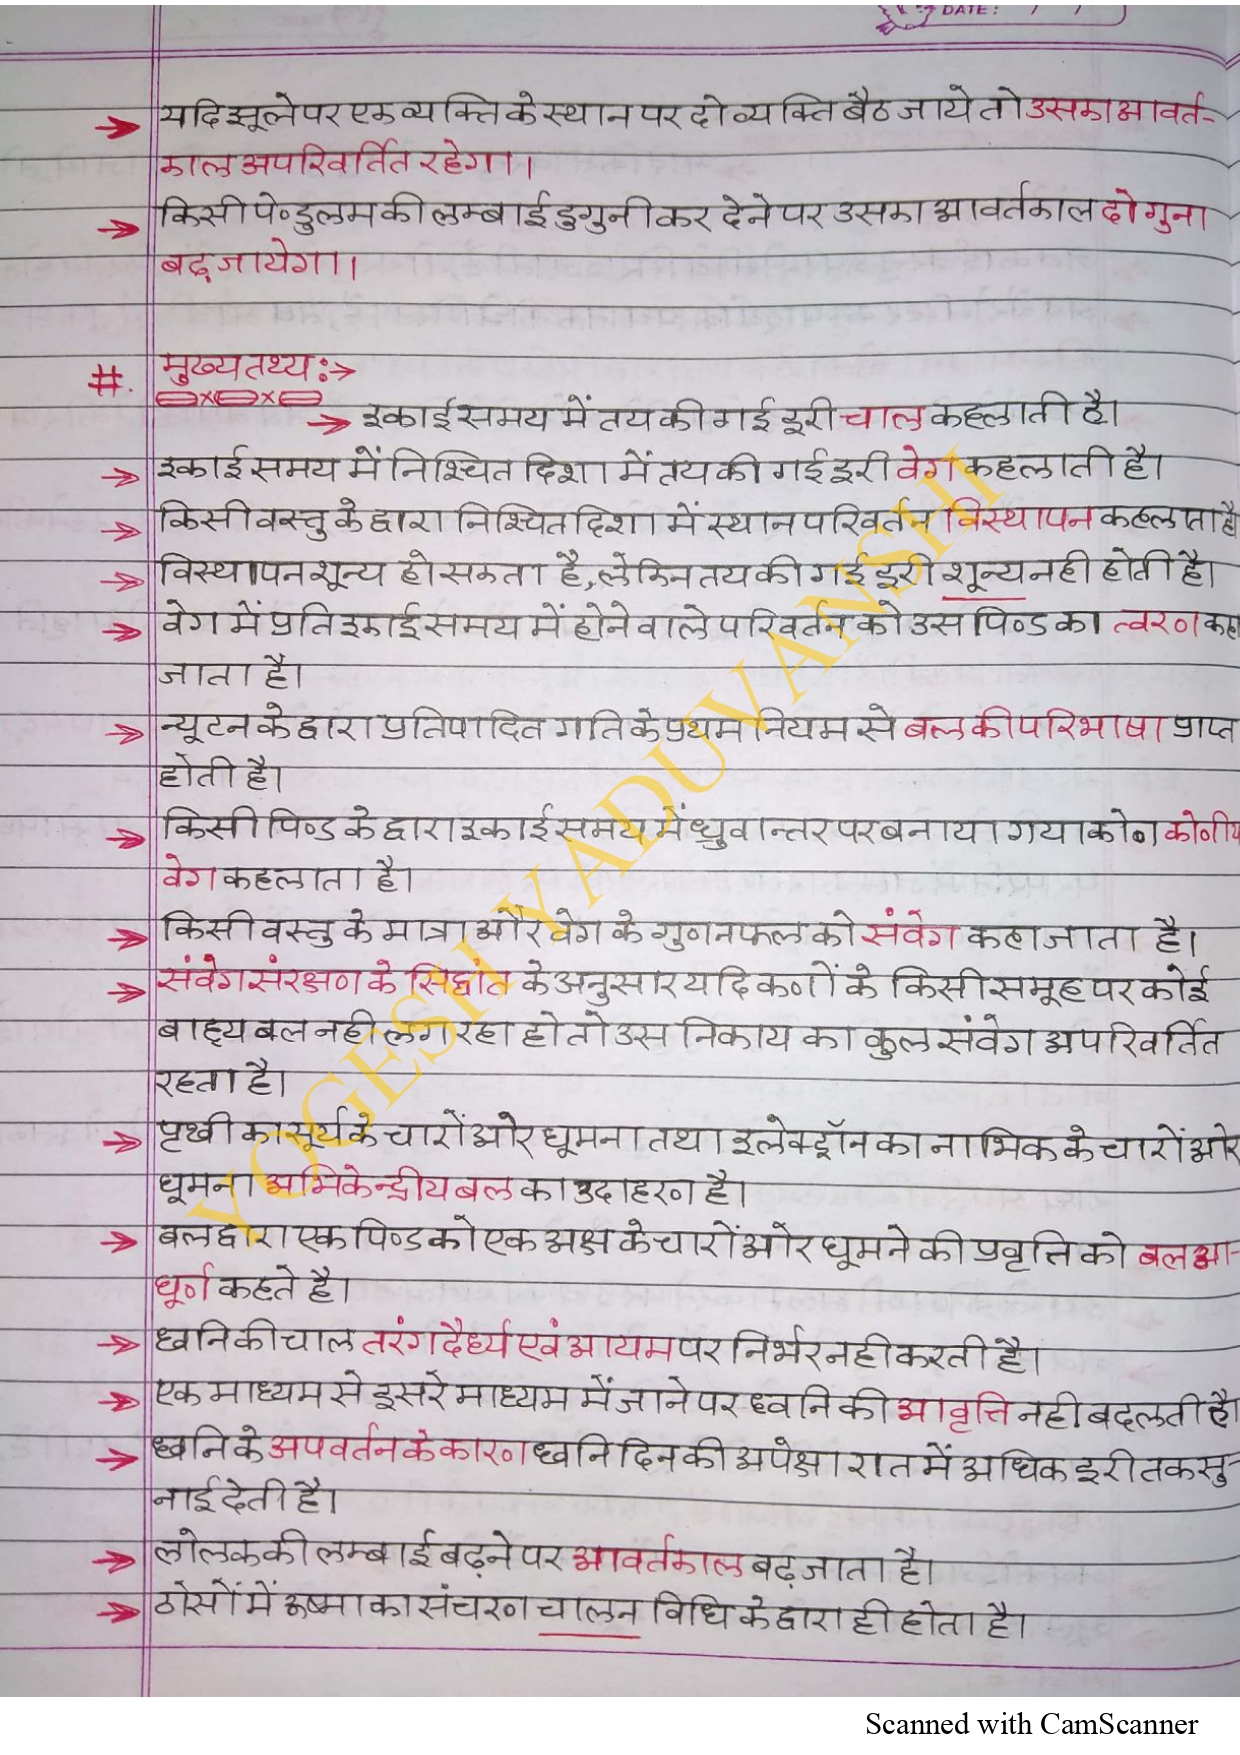 DATE: / /
यदि झूले पर एक व्यक्ति के स्थान पर दो व्यक्ति बैठ जाये तो उसका आवर्त-
काल अपरिवर्तित रहेगा।
किसी पेण्डुलम की लम्बाई दुगुनी कर देने पर उसका आवर्तकाल दो गुना
बढ़ जायेगा।
#. मुख्य तथ्य :→
→ इकाई समय में तय की गई दूरी चाल कहलाती है।
→ इकाई समय में निश्चित दिशा में तय की गई दूरी वेग कहलाती है।
→ किसी वस्तु के द्वारा निश्चित दिशा में स्थान परिवर्तन विस्थापन कहलाता है
→ विस्थापन शून्य हो सकता है, लेकिन तय की गई दूरी शून्य नही होती है।
→ वेग में प्रति इकाई समय में होने वाले परिवर्तन को उस पिण्ड का त्वरण कहा
जाता है।
→ न्यूटन के द्वारा प्रतिपादित गति के प्रथम नियम से बल की परिभाषा प्राप्त
होती है।
→ किसी पिण्ड के द्वारा इकाई समय में ध्रुवान्तर पर बनाया गया कोण कोणीय
वेग कहलाता है।
→ किसी वस्तु के मात्रा और वेग के गुणनफल को संवेग कहा जाता है।
→ संवेग संरक्षण के सिद्धांत के अनुसार यदि कणों के किसी समूह पर कोई
बाह्य बल नही लग रहा हो तो उस निकाय का कुल संवेग अपरिवर्तित
रहता है।
→ पृथ्वी का सूर्य के चारों ओर घूमना तथा इलेक्ट्रॉन का नाभिक के चारों ओर
घूमना अभिकेन्द्रीय बल का उदाहरण है।
→ बल द्वारा एक पिण्ड को एक अक्ष के चारों ओर घूमने की प्रवृत्ति को बल आ-
घूर्ण कहते है।
→ ध्वनि की चाल तरंगदैर्ध्य एवं आयाम पर निर्भर नही करती है।
→ एक माध्यम से दूसरे माध्यम में जाने पर ध्वनि की आवृत्ति नही बदलती है।
→ ध्वनि के अपवर्तन के कारण ध्वनि दिन की अपेक्षा रात में अधिक दूरी तक सु-
नाई देती है।
→ लोलक की लम्बाई बढ़ने पर आवर्तकाल बढ़ जाता है।
→ ठोसों में ऊष्मा का संचरण चालन विधि के द्वारा ही होता है।
YOGESH YADUVANSHI
Scanned with CamScanner